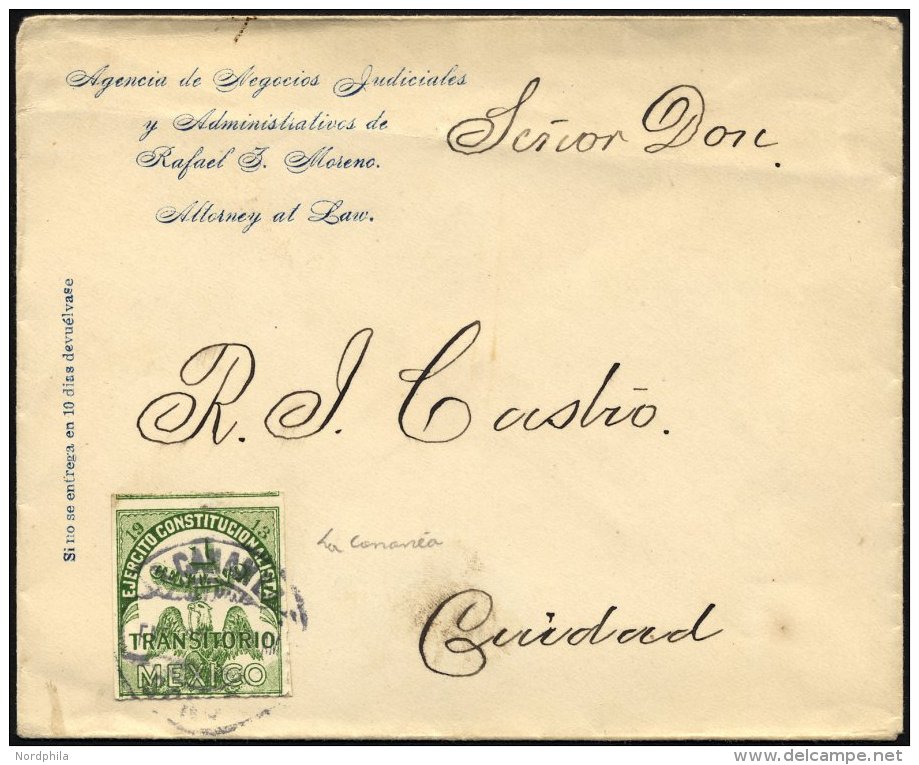 Agencia de Negocios Judiciales
y Administrativos de
Rafael J. Moreno.
Attorney at Law.
Señor Don.
Si no se entrega en 10 dias devuélvase
R. J. Castro.
19 13
EJERCITO CONSTITUCIONALISTA
1
TRANSITORIO
MEXICO
CANANEA
La Cananéa
Cuidad
Nordphila
www.delcampe.net